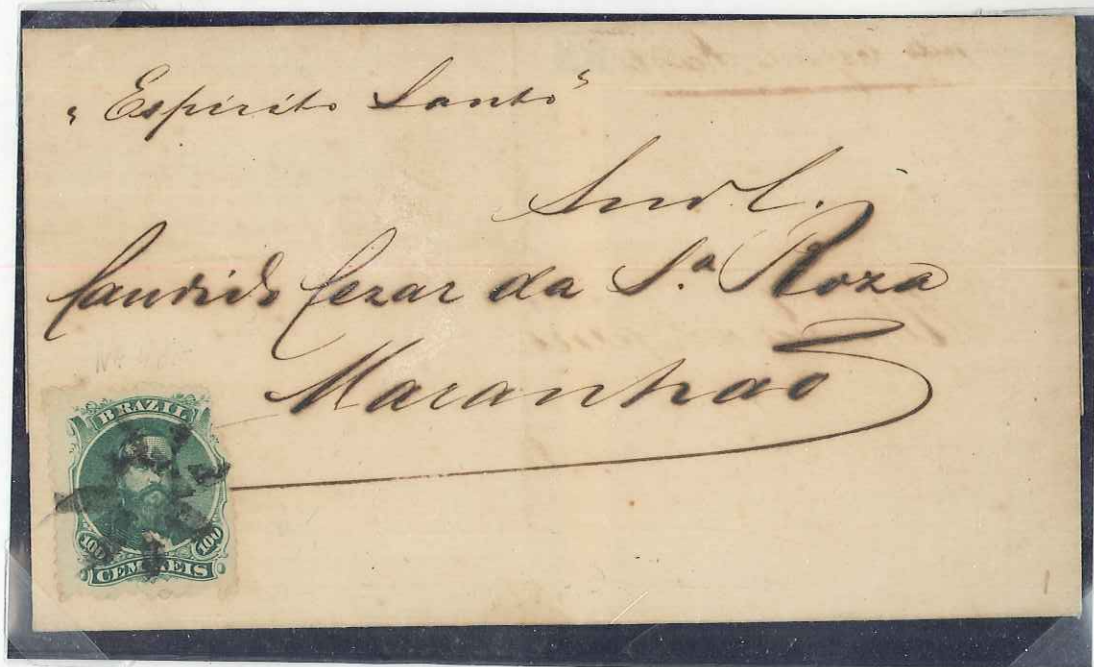 "Espirito Santo"
Candido Cezar da S.ª Roza
Maranhão
BRAZIL
100 100
CEM REIS